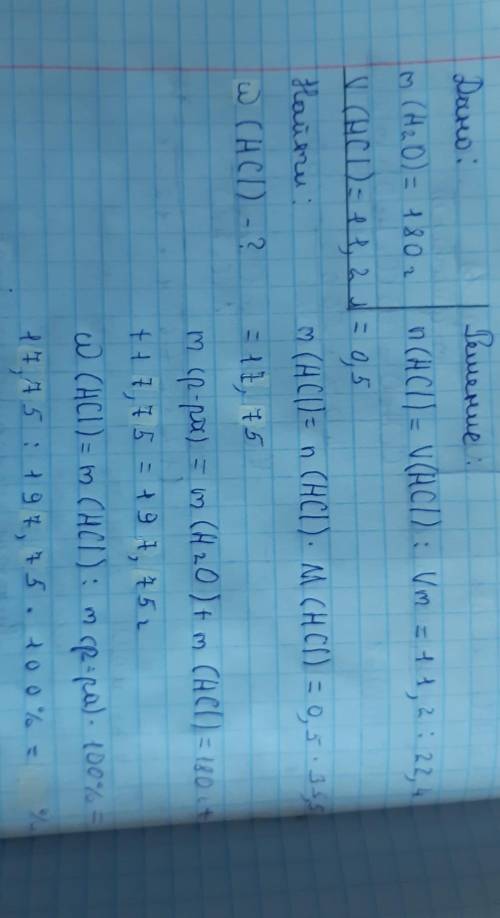 Дано:
m(H2O)=180г
V(HCl)=11,2л
Найти:
ω(HCl)-?
Решение:
n(HCl)=V(HCl):Vm=11,2:22,4
=0,5
m(HCl)=n(HCl)·M(HCl)=0,5·35,5
=17,75
m(р-ра)=m(H2O)+m(HCl)=180г+
+17,75=197,75г
ω(HCl)=m(HCl):m(р-ра)·100%=
17,75:197,75·100%= %